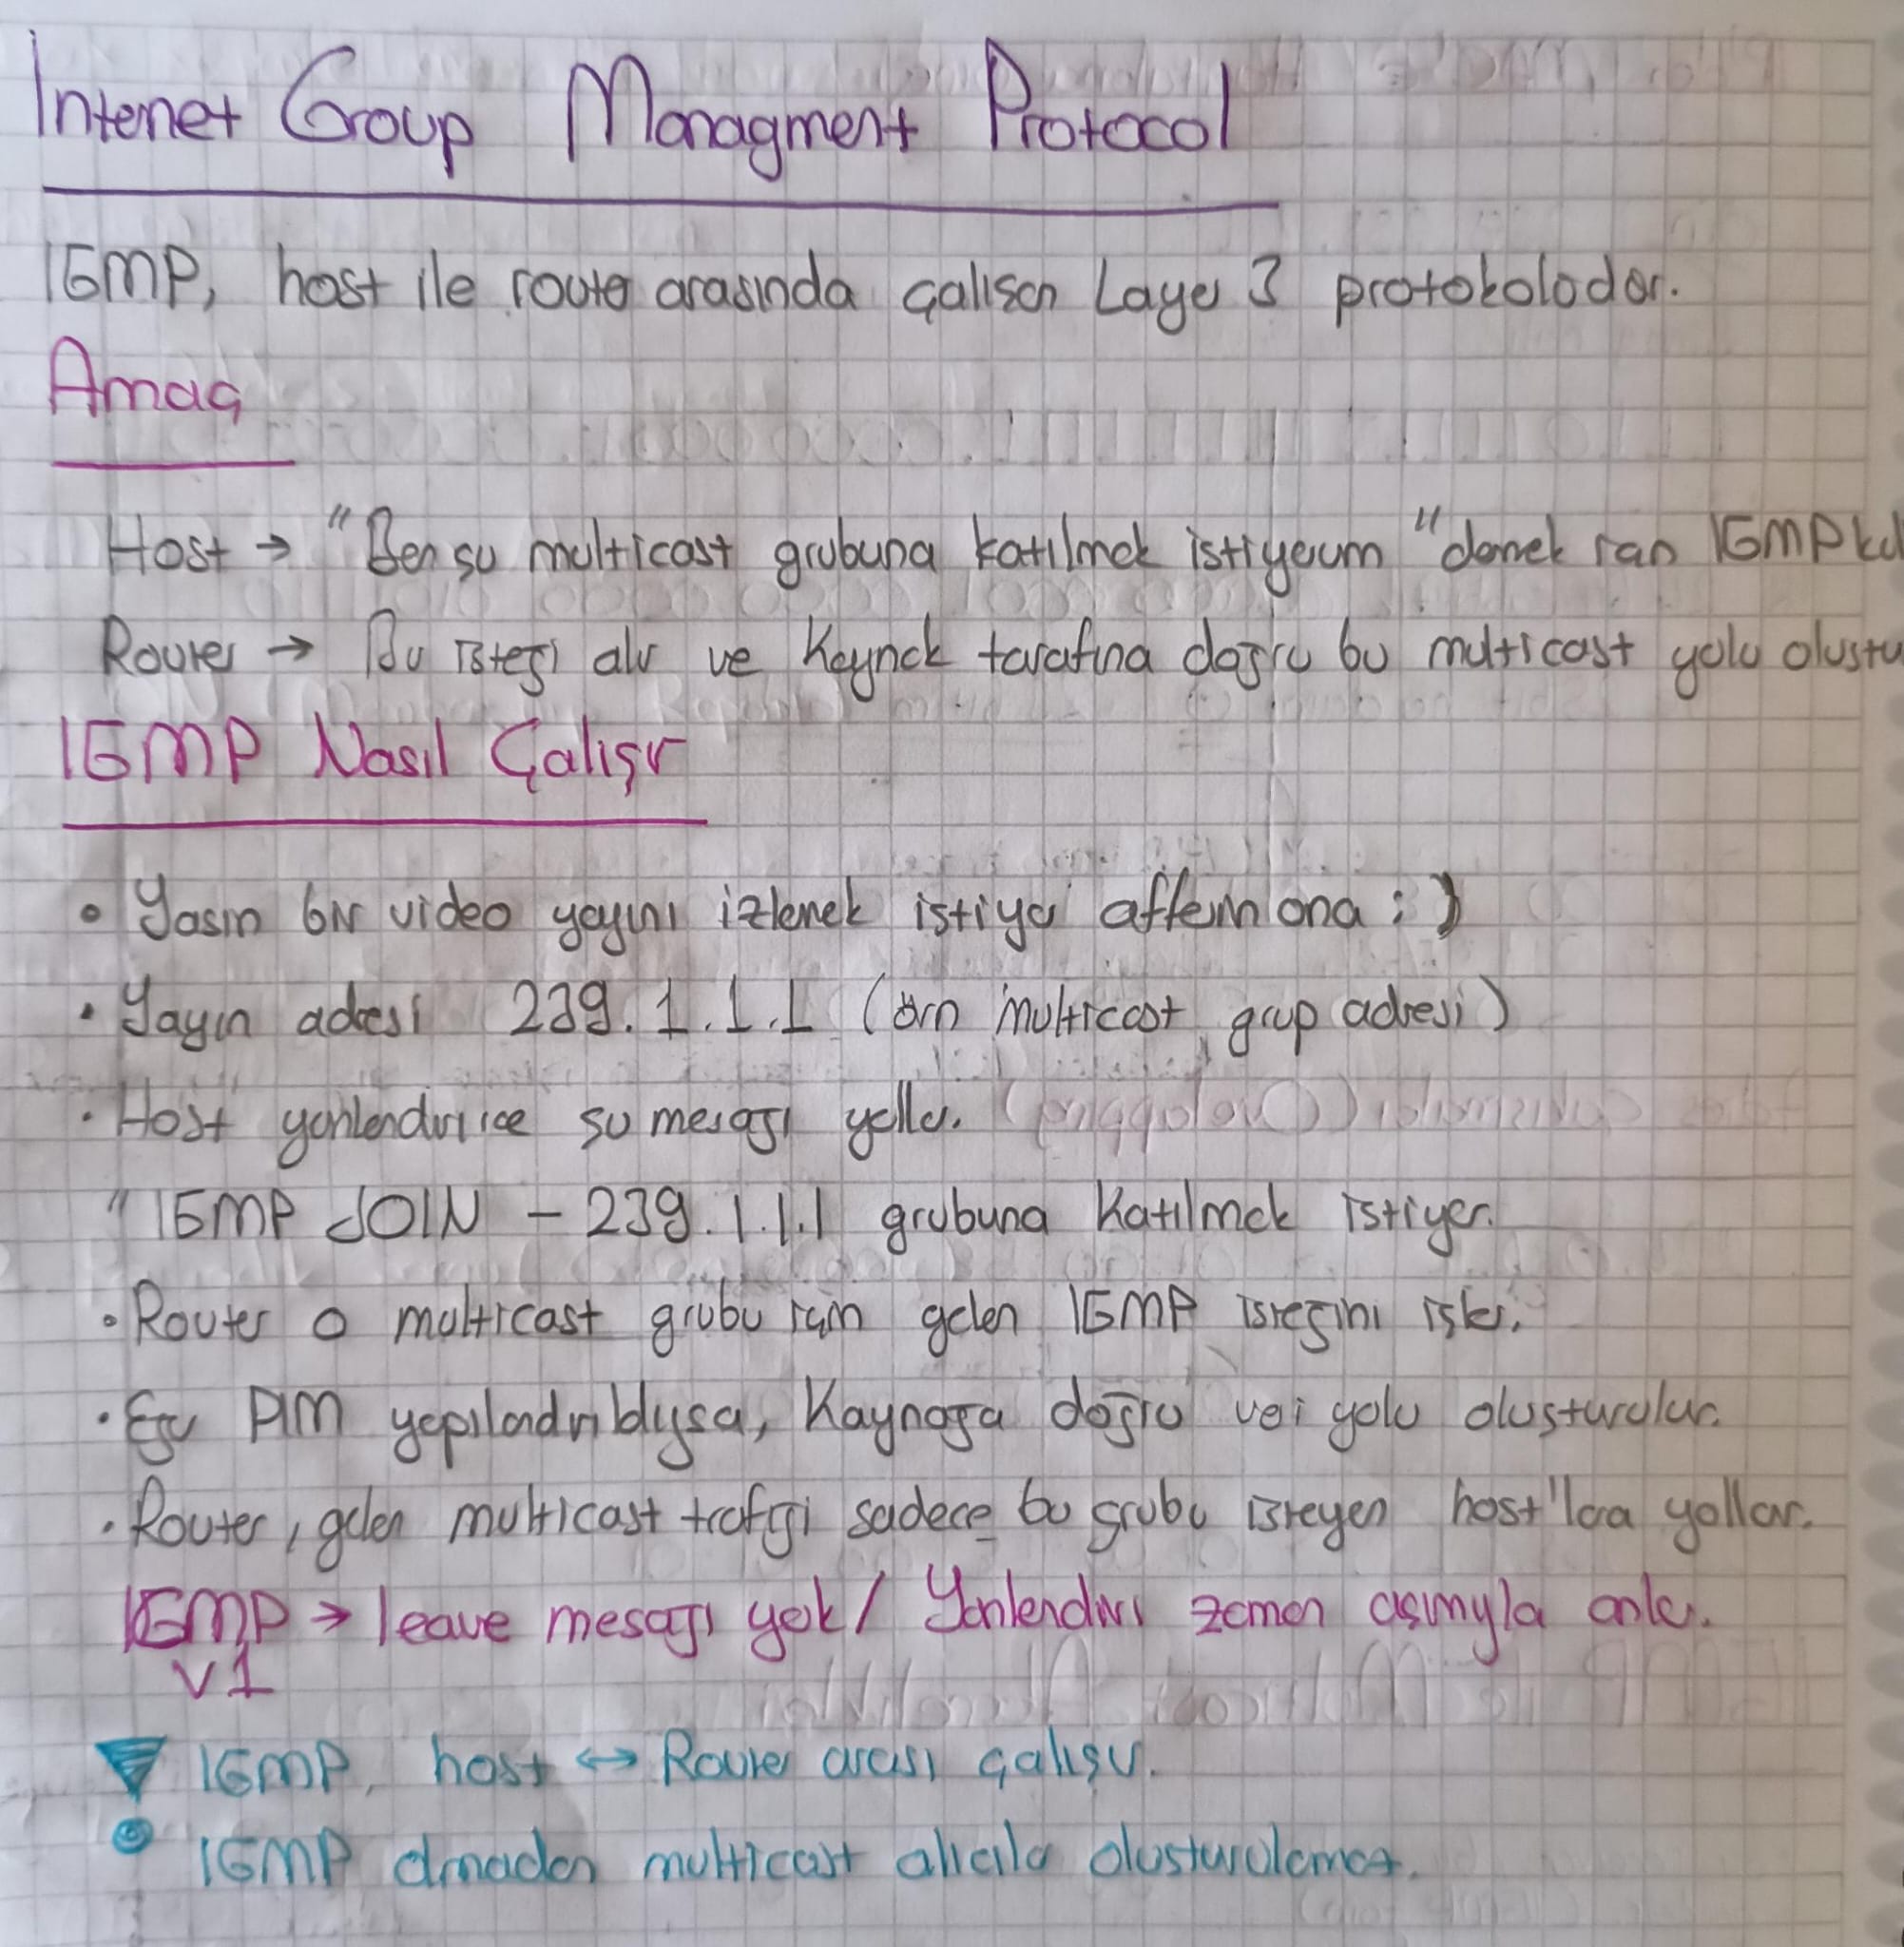 Internet Group Managment Protocol
IGMP, host ile router arasında çalısan Layer 3 protokolodor.
Amaç
Host → "Ben su multicast grubuna katılmak istiyorum" demek için IGMP kul
Router → Bu isteği alır ve Kaynak tarafına doğru bu multicast yolu olustu
IGMP Nasıl Çalışır
• Yasin bir video yayını izlemek istiyor afferin ona :)
• Yayın adresi 239.1.1.1 (örn multicast grup adresi)
• Host yönlendiriciye su mesajı yollar.
"IGMP JOIN – 239.1.1.1 grubuna Katılmak istiyor.
• Router o multicast grubu için gelen IGMP isteğini işler.
• Eğer PIM yapılandırıldıysa, Kaynağa doğru veri yolu olusturulur.
• Router, gelen multicast trafiği sadece bu grubu isteyen host'lara yollar.
IGMP → leave mesajı yok / Yönlendirici zaman aşımıyla anlar.
v1
IGMP, host ↔ Router arası çalışır.
IGMP olmadan multicast alıcılar olusturulamaz.